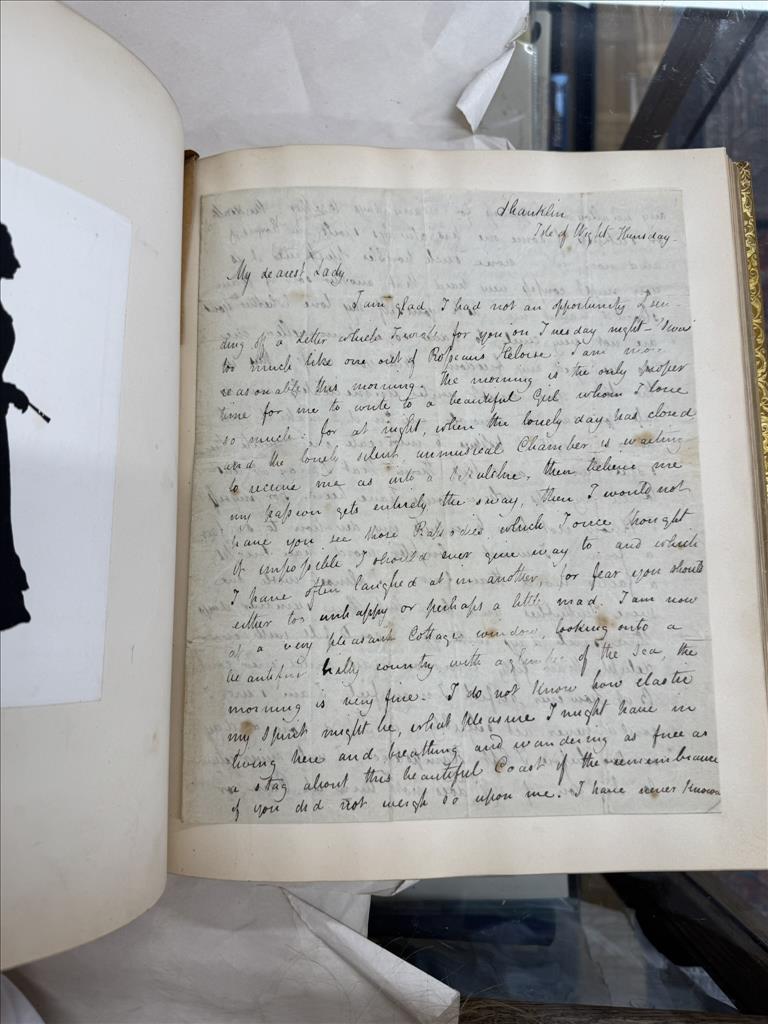 Shanklin
Isle of Wight Thursday—
My dearest Lady,
I am glad I had not an opportunity Sen-
ding off a Letter which I wrote for you on Tuesday night—'twas
too much like one out of Rousseaus Heloise. I am more
reasonable this morning. The morning is the only proper
time for me to write to a beautiful Girl whom I love
so much: for at night, when the lonely day has closed
and the lonely silent unmusical Chamber is waiting
to receive me as into a Sepulchre, then believe me
my passion gets entirely the sway, then I would not
have you see those Rapsodies which I once thought
it impossible I should ever give way to and which
I have often laughed at in another, for fear you should
either too unhappy or perhaps a little mad. I am now
at a very pleasant Cottage window, looking onto a
beautiful hilly country with a glimpse of the sea, the
morning is very fine. I do not know how elastic
my spirit might be, what pleasure I might have in
living here and breathing and wandering as free as
a stag about this beautiful Coast if the remembrance
of you did not weigh so upon me. I have never known